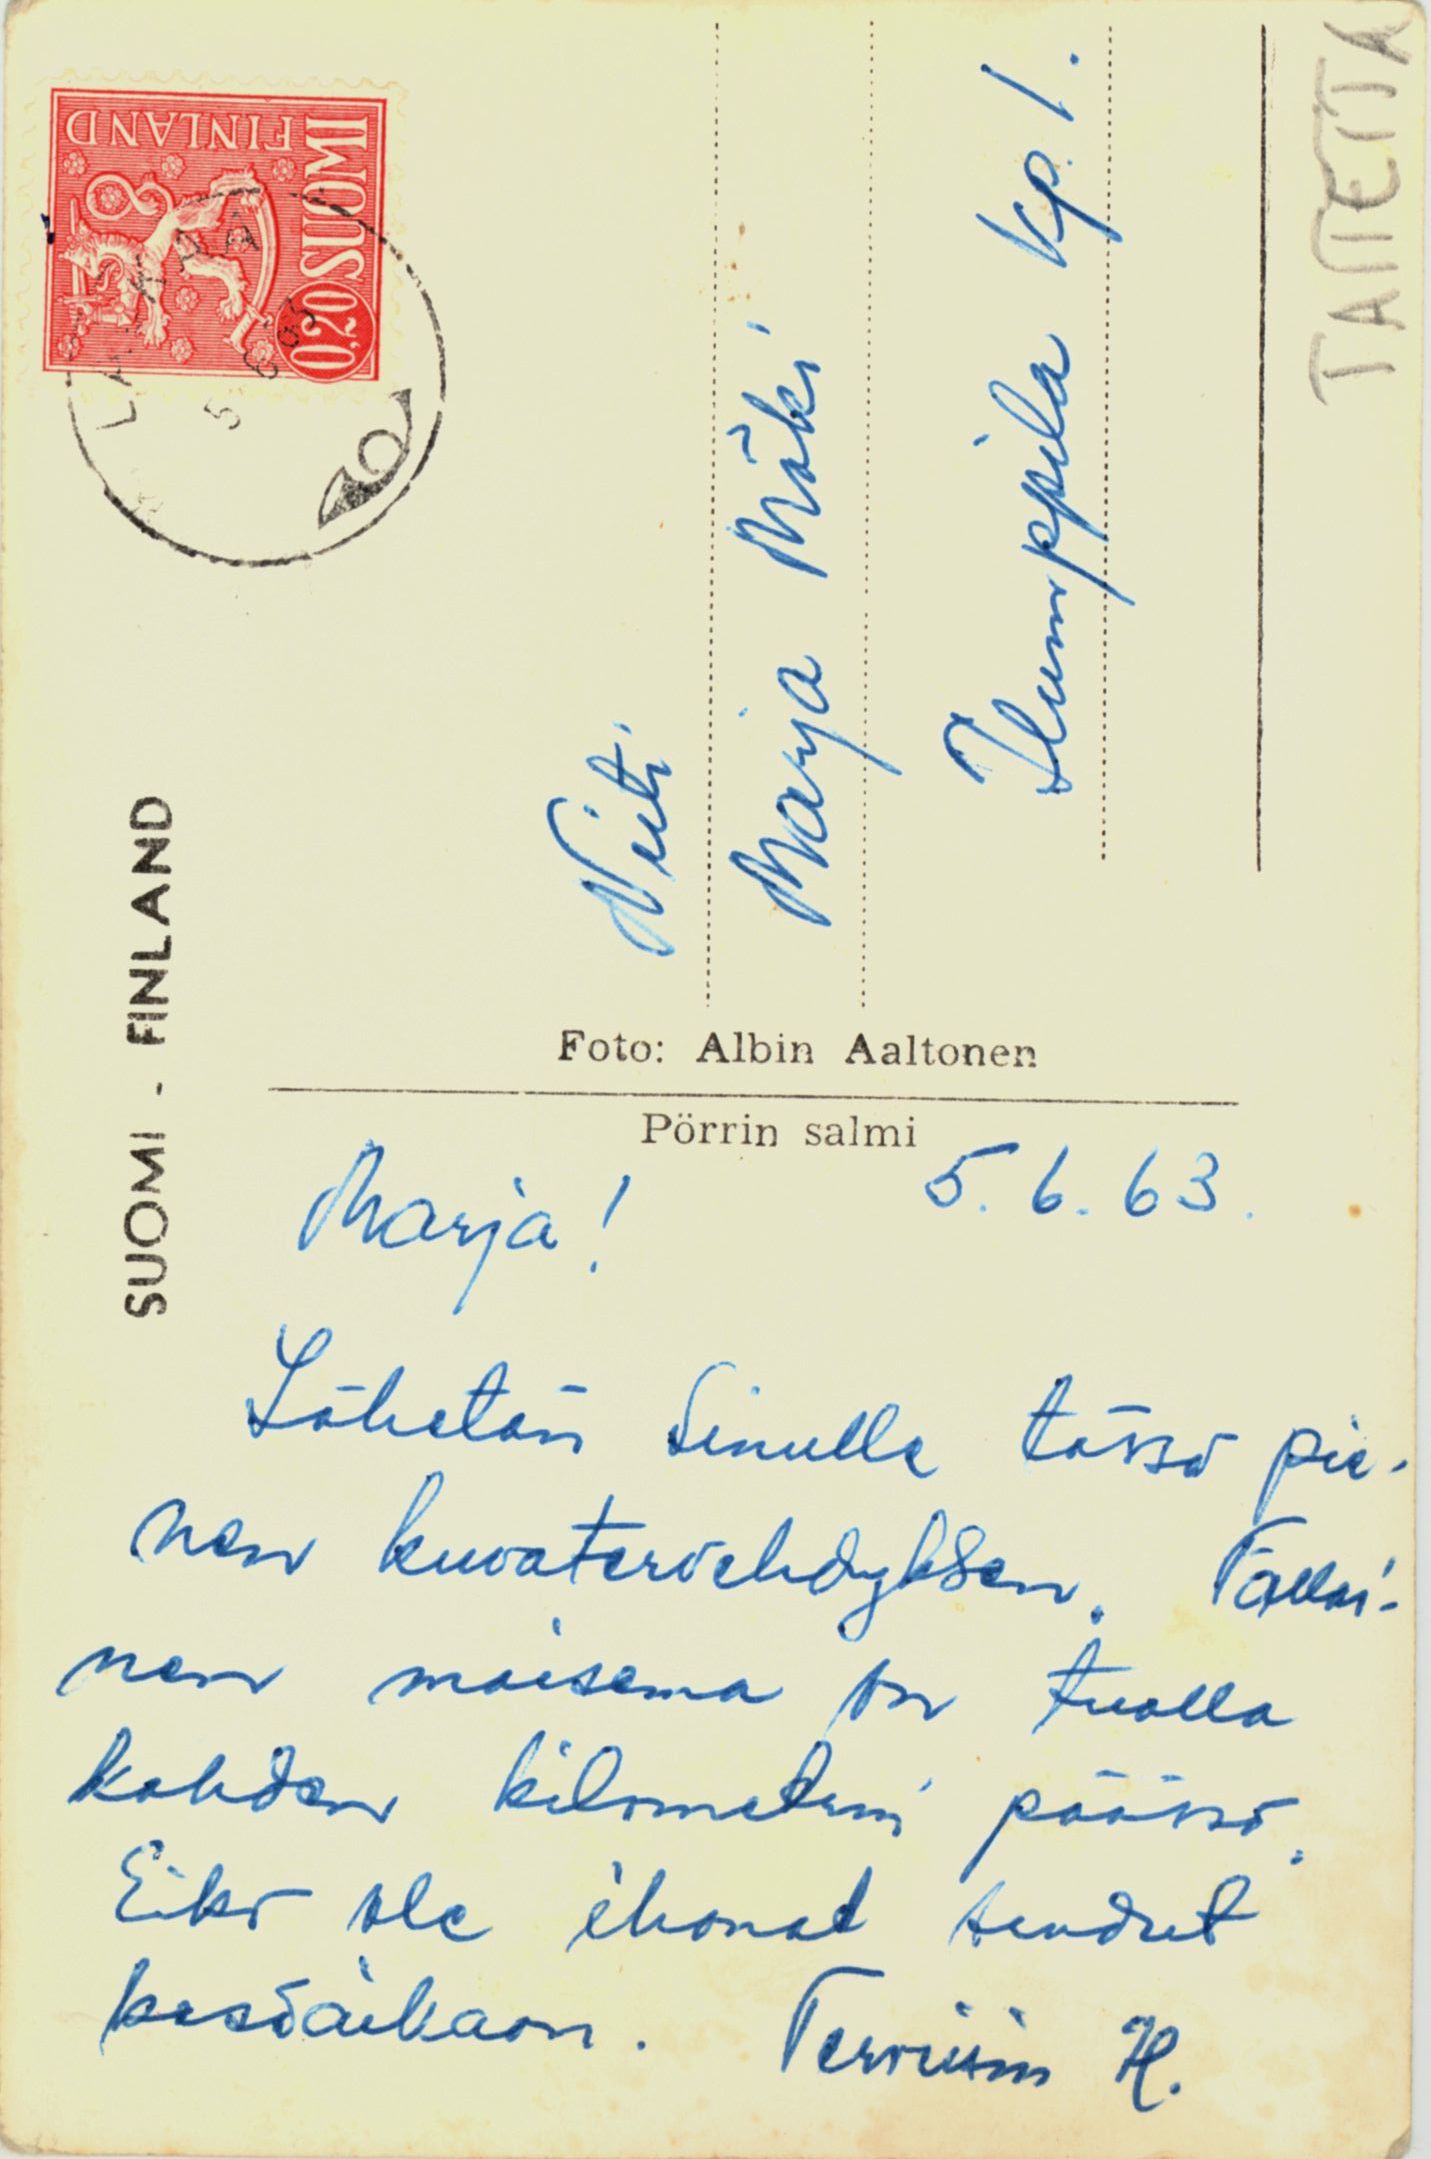 SUOMI FINLAND
0,20
5. 6. 63
SUOMI - FINLAND
Neiti
Marja Mäki
Humppila kp. 1.
TAITETTA
Foto: Albin Aaltonen
Pörrin salmi
5. 6. 63.
Marja!
Lähetän Sinulle tässä pie-
nen kuvatervehdyksen. Tällai-
nen maisema on tuolla
kahden kilometrin päässä.
Eikö ole ihanat seudut
kesäaikaan. Terveisin H.